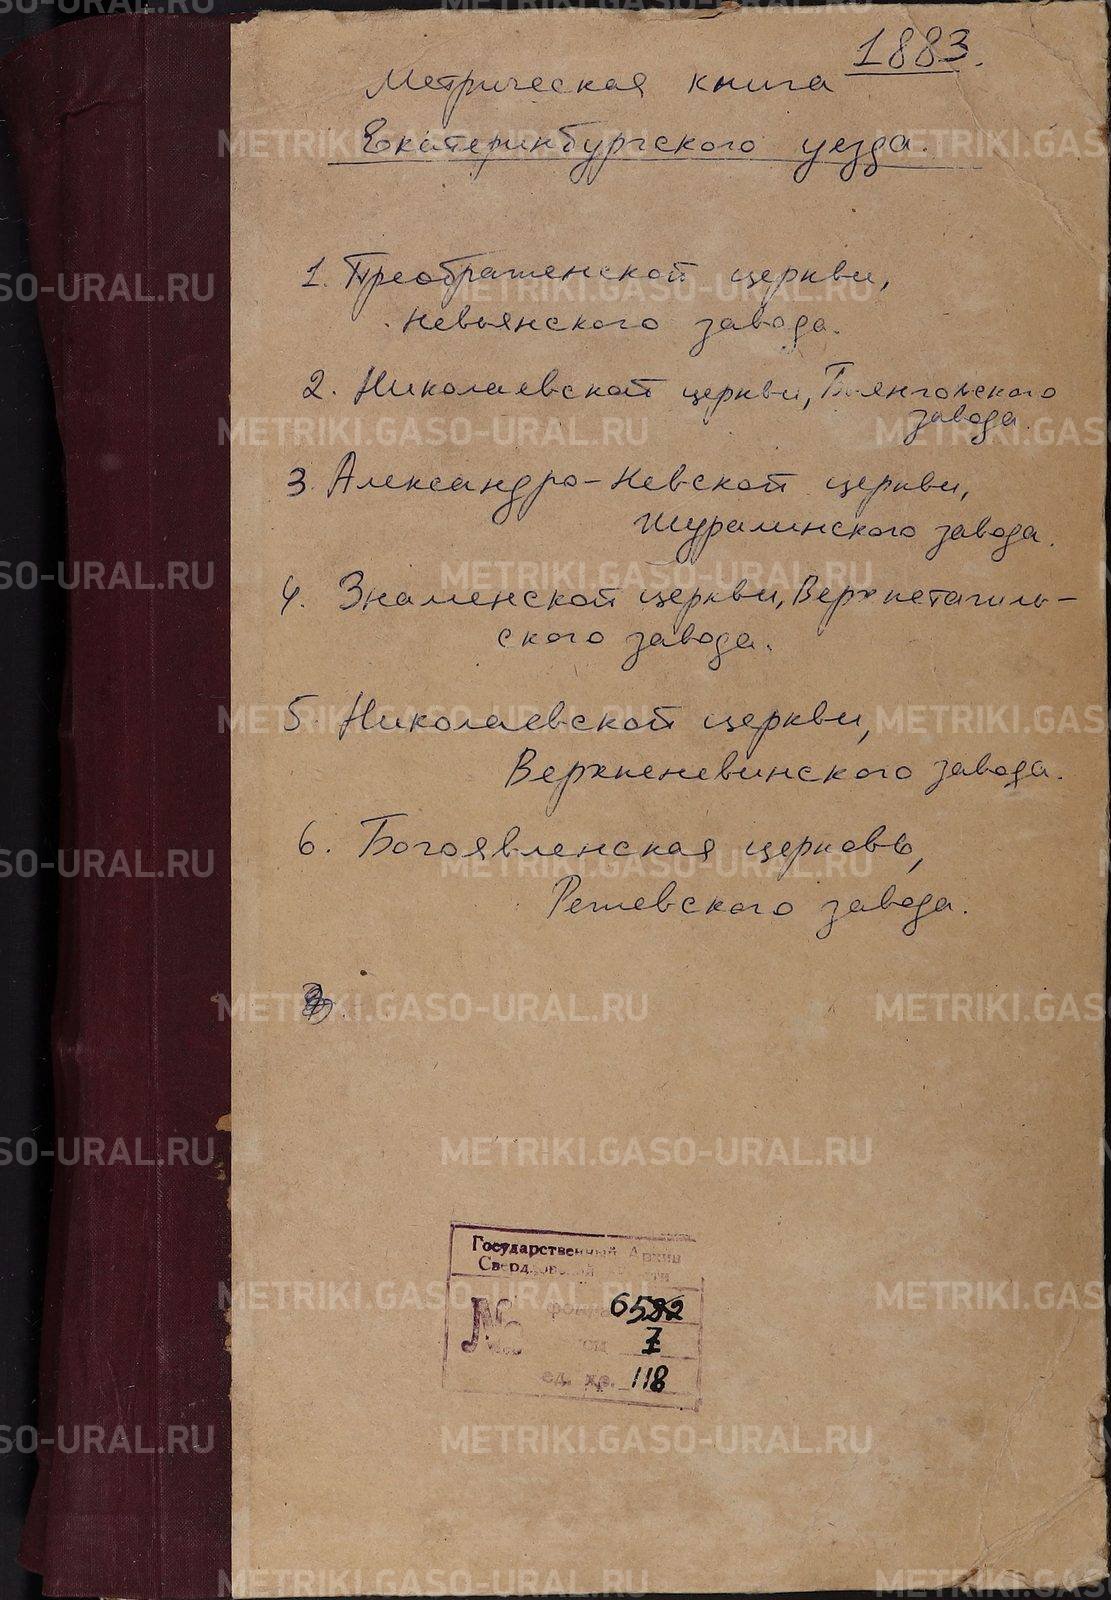 1883.
Метрическая книга
Екатеринбургского уезда.
1. Преображенской церкви,
Невьянского завода.
2. Николаевской церкви, Быньговского
завода.
3. Александро-Невской церкви,
Шуралинского завода.
4. Знаменской церкви, Верхнетагиль-
ского завода.
5. Николаевской церкви,
Верхненевинского завода.
6. Богоявленская церковь,
Режевского завода.
Государственный Архив
Свердловской области
№ фонд 6582
7
ед. хр. 118
METRIKI.GASO-URAL.RU